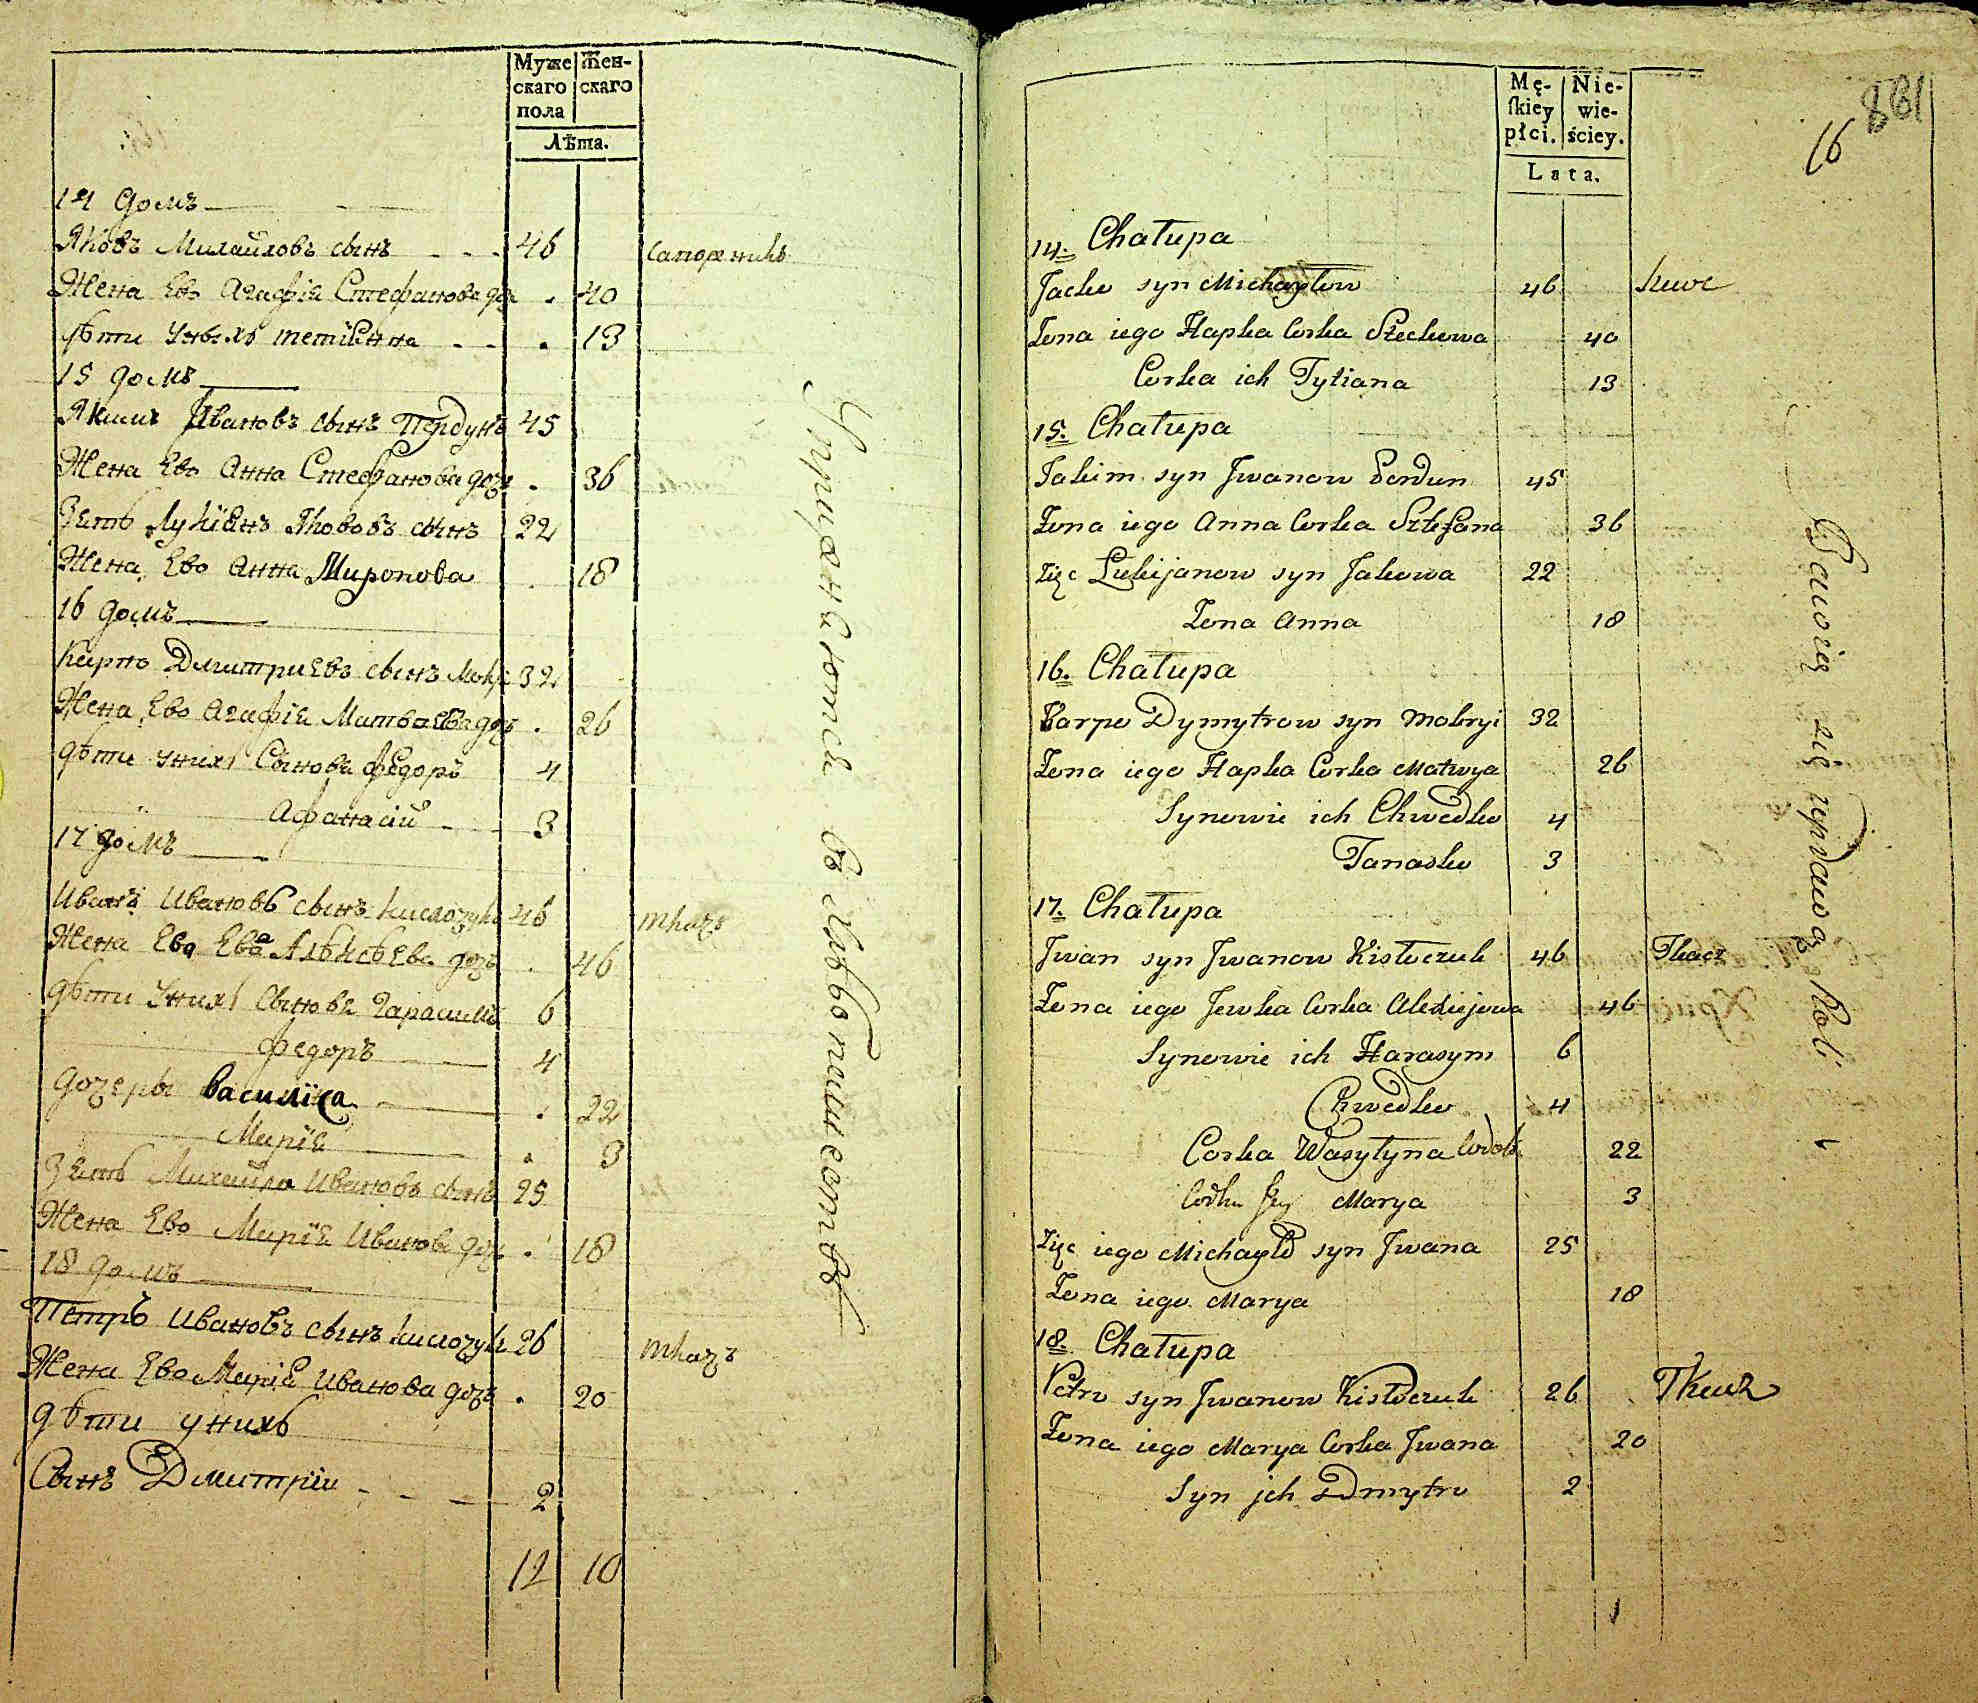 Муже
скаго
пола
Жен-
скаго
Лѣта.
14 домъ
Яковъ Михайловъ сынъ 46 сапожникъ
Жена Ево Агафія Стефанова доч 40
дѣти унихъ Тетіянна 13
15 домъ
Якимъ Ивановъ сынъ Пердунъ 45
Жена Ево Анна Стефанова доч 36
Зять Лукіянъ Яковъ сынъ 22
Жена Ево Анна Миронова 18
16 домъ
Карпо Дмитриевъ сынъ 32
Жена Ево Агафія Матвѣева доч 26
дѣти унихъ Сыновя Федоръ 4
Афанасій 3
17 домъ
Иванъ Ивановъ сынъ Кислочук 46 ткачъ
Жена Ево Ева Алѣксѣева доч 46
дѣти унихъ сыновя Гарасимъ 6
Федоръ 4
дочеры Василіса 22
Марія 3
Зять Михайла Ивановъ сынъ 25
Жена Ево Марія Иванова доч 18
18 домъ
Петръ Ивановъ сынъ Кислочук 26 ткачъ
Жена Ево Марія Иванова доч 20
дѣти унихъ
Сынъ Дмитрій 2
12 10
Упражняются въ хлѣбопашествѣ
Mę-
ſkiey
płci.
Nie-
wie-
ściey.
Lata.
16
14. Chałupa
Jacko syn Michayłow 46 szwc
Żona iego Hapka Corka Stećkowa 40
Corka ich Tytiana 13
15. Chałupa
Jakim syn Jwanow Perdun 45
Żona iego Anna Corka Sztefana 36
Zięc Łukijanow syn Jakowa 22
Żona Anna 18
16. Chałupa
Karpo Dymytrow syn Mokryi 32
Żona iego Hapka Corka Matwya 26
Synowie ich Chwedko 4
Tanasko 3
17. Chałupa
Jwan syn Jwanow Kisłoczuk 46 Tkacz
Żona iego Jewka Corka Alexiejowa 46
Synowie ich Harasym 6
Chwedko 4
Corka Wasylyna 22
Marya 3
Zięc iego Michayło syn Jwana 25
Żona iego Marya 18
18. Chałupa
Petro syn Jwanow Kisłoczuk 26 Tkacz
Żona iego Marya Corka Jwana 20
Syn jch Dmytro 2
Bawoią się uprawą Roli